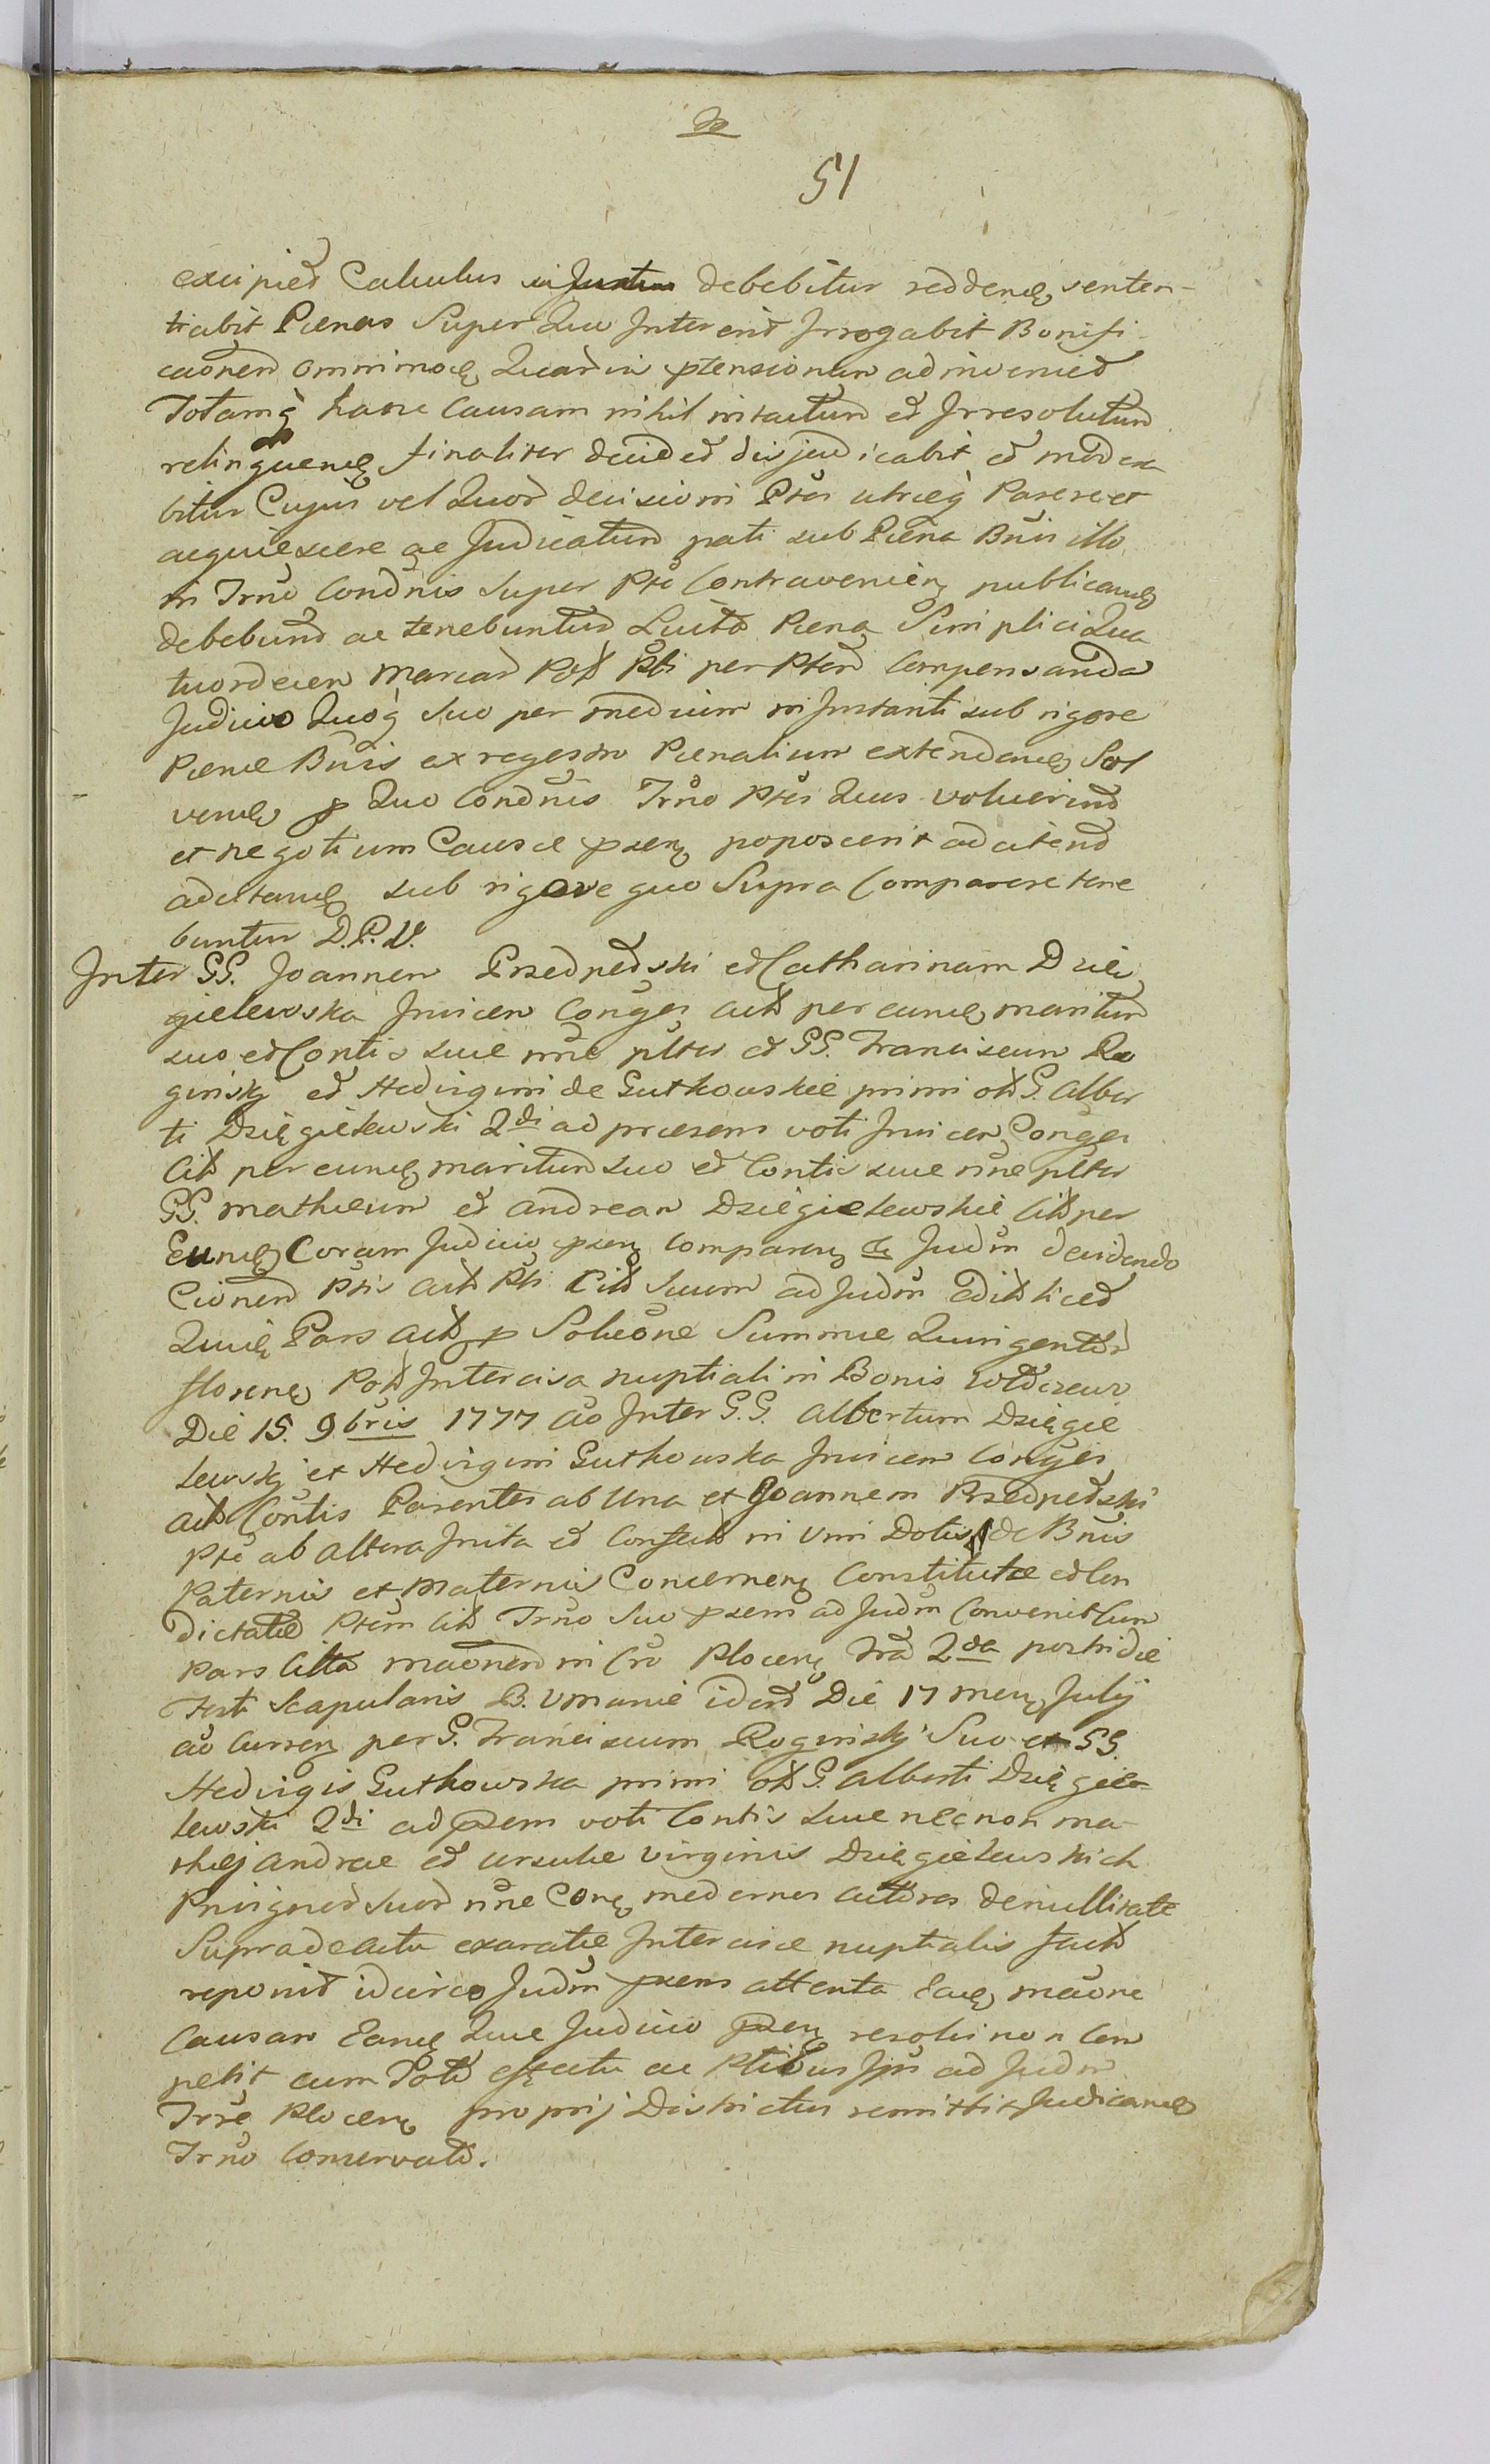 51
excipiet Calculus debebitur reddend senten-
tiabit Pænas Super Quo Intererit Irrogabit Bonifi-
caonem omnimod Quarum ptensionum adinveniet
Totamq hanc Causam nihil intactum et Irresolutum
relinquend finaliter decid et disjudicabit et
bitur Cujus vel Quor decisioni Ptes utræq Parere et
acquiescere ac Judicatum pati sub Pæna Bnis illo
in Trno Condnis Super Pte Contravenien publicand
debebund ac tenebuntur Luita Pæna Simplici Qua
tuordecem Marcar Pol Pti per Ptem Compensanda
Judicio Quoq suo per medium in Instanti sub rigore
Pænæ Bnis ex regestro Pænalium extendend Sol
vend p Quo Condnis Trno Ptes Quas voluerind
et negotium Causæ psen poposcerit ad citand
adcitand sub rigore quo Supra Comparere tene
buntur D.P.V.
Inter GG. Joannem Przedpełski et Catharinam Dzię
gielewska Invicem Conges act per eund maritum
suo et Contis suæ nne plter et GG. Franciscum Ro
ginskj et Hedvigim de Gutkowskie primi olt G. Alber
ti Dzięgielewski 2di ad præsens voti Invicem Conges
Cit per eund maritum suo et Contis suæ nne plter
GG. Mathæum et Andream Dzięgielewskie Cit per
Eund Coram Judicio psen Comparen Judm decidendo
Cionem Ptis act Pti Cit suum ad Judm edit licet
Quid Pars act p Solione Summæ Quingentor
floren Pol Intercisa nuptiali in Bonis
Die 15. 9bris 1777 ao Inter G.G. Albertum Dzięgie
lewskj et Hedvigim Gutkowska Invicem Conges
act Contis Parentes ab Una et Joannem Przedpełski
Pte ab altera Inita et Confect in Vim Dotis de Bnis
Paternis et Maternis Concernen Constitutæ et Con
dictatæ Ptem Cit Trno suo psem ad Judm Convenit Cum
Pars Citta maonem in Cro Plocen fra 2da postridie
Festi Scapularis B. VMariæ id est Die 17 men Julij
ao Curren per G. Franciscum Roginskj Suo et GG
Hedvigis Gutkowska primi olt G. Alberti Dzięgie
lewski 2di ad psem voti Contis suæ nec non Ma-
thej Andreæ et Ursulæ virginis Dzięgielewskich
Privignor suor nne Con modernos actores de nullitate
Supra de actu exaratæ Intercisæ nuptialis fact
reponit idcirco Judm psens attenta Ead maone
Causam Eand Quæ Judicio psen resolvi non Com
petit cum Toto effectu ac Ptibus Ips ad Judm
Trre Plocen proprij Districtus remittit Judicand
Trno Conservato.